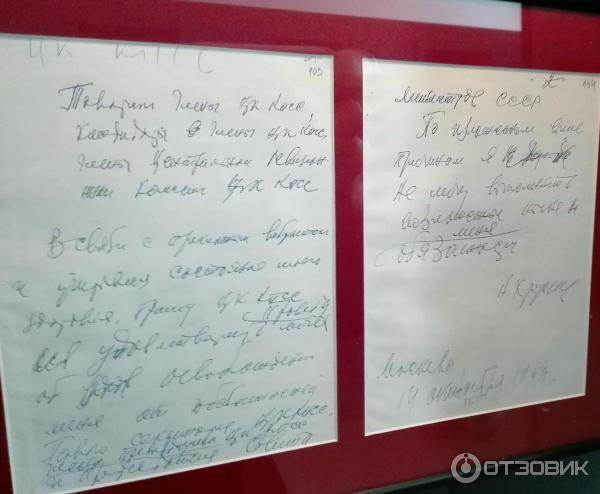 ЦК КПСС
103
Товарищи члены ЦК КПСС,
кандидаты в члены ЦК КПСС
члены Центральной Ревизион
ной Комиссии ЦК КПСС
В связи с преклонным возрастом
и учитывая состояние моего
здоровья, прошу ЦК КПСС
удовлетворить
от освобождении
меня от обязанностей
Первого секретаря ЦК КПСС,
члена Президиума ЦК КПСС
и Председателя Совета
2
104
Министров СССР.
По изложенным выше
причинам я
не могу выполнять
возложенные ныне на
меня
обязанности
Н. Хрущев
Москва,
14 октября 1964
ОТЗОВИК